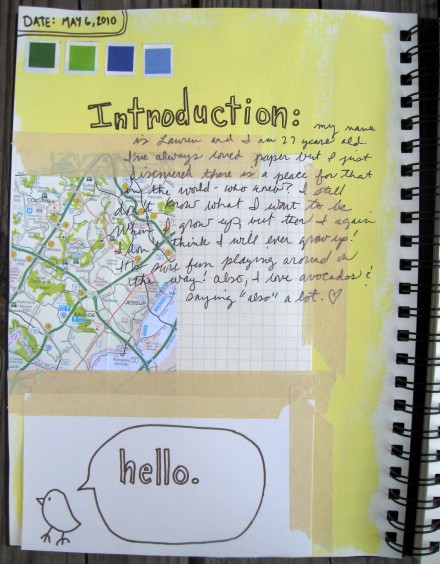 DATE: MAY 6, 2010
Introduction: my name
is Lauren and I am 27 years old.
I've always loved paper but I just
discovered there is a place for that
in the world - who knew? I still
don't know what I want to be
when I grow up, but then again
I don't think I will ever grow up!
It's sure fun playing around on
the way! also, I love avocados &
saying "also" a lot. ♡
COLUMBIA
SAVAGE
JESSUP
hello.